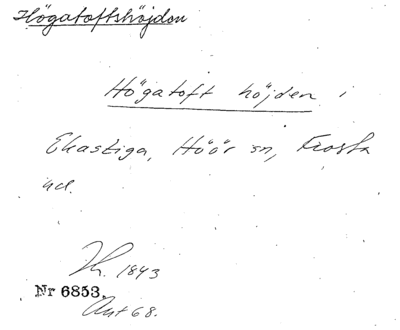 Högatoftshöjdon
Högatoft höjden i
Ekastiga, Höör sn, Frosta
hd.
Th. 1843
Nr 6853.
Ant 68.